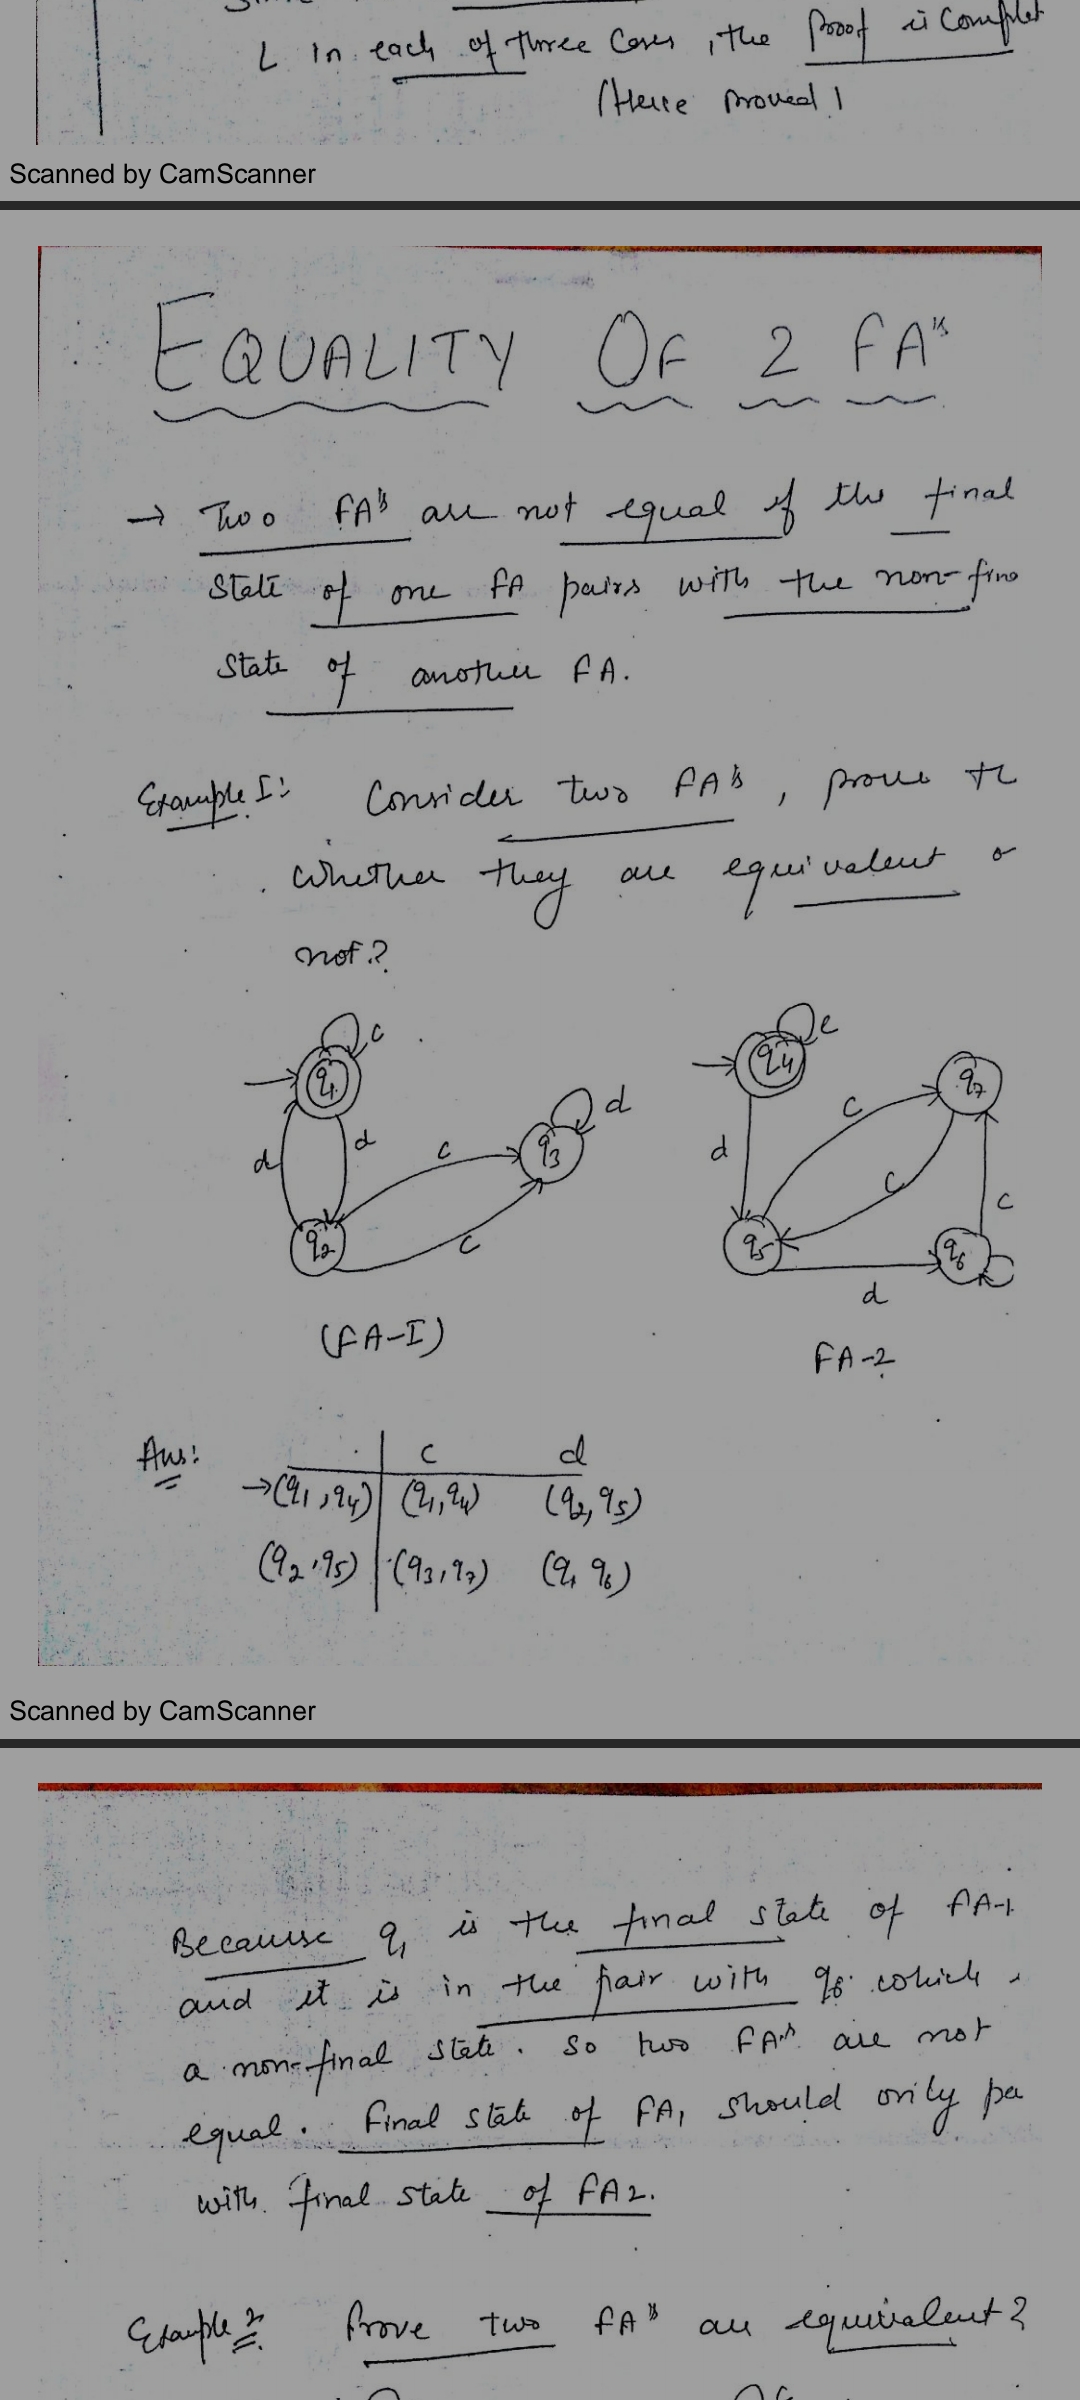 L In each of three Cases, the Proof is Complet
(Hence Proved)
Scanned by CamScanner
EQUALITY OF 2 FA's
→ Two FA's are not equal if the final
State of one FA pairs with the non-fina
State of another FA.
Example I: Consider two FA's, prove th
whether they are equivalent o
not?
c
q1
d
d
q2
c
c
q3
d
(FA-I)
q4
c
d
q5
c
c
q7
c
q6
d
FA-2
Ans:
c d
→(q1, q4) (q1, q4) (q2, q5)
(q2, q5) (q3, q7) (q1 q6)
Scanned by CamScanner
Because q1 is the final state of FA-1
and it is in the pair with q6 which
a non-final state. So two FA's are not
equal. Final state of FA1 should only pa
with final state of FA2.
Example 2 Prove two FA's are equivalent?